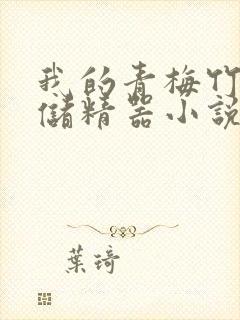 我的青梅竹
儲精器小説
葉琦